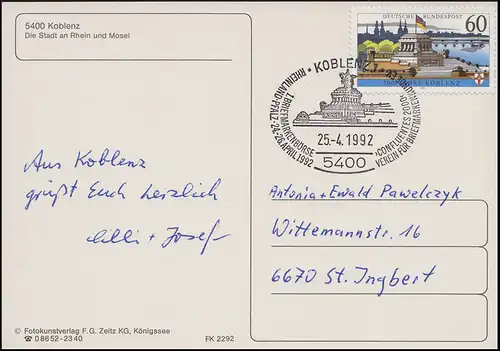 5400 Koblenz
Die Stadt an Rhein und Mosel
DEUTSCHE BUNDESPOST
60
2000 JAHRE KOBLENZ
KOBLENZ 1
RHEINLAND-PFALZ · 24.-26. APRIL 1992
1. BRIEFMARKENBÖRSE
»CONFLUENTES 2000«
VEREIN FÜR BRIEFMARKENKUNDE E.V.
25.-4.1992
5400
Aus Koblenz
grüßt Euch herzlich
Lilli + Josef
Antonia + Ewald Pawelczyk
Wittemannstr. 16
6670 St. Ingbert
© Fotokunstverlag F. G. Zeitz KG, Königssee
☎ 08652-2340
FK 2292